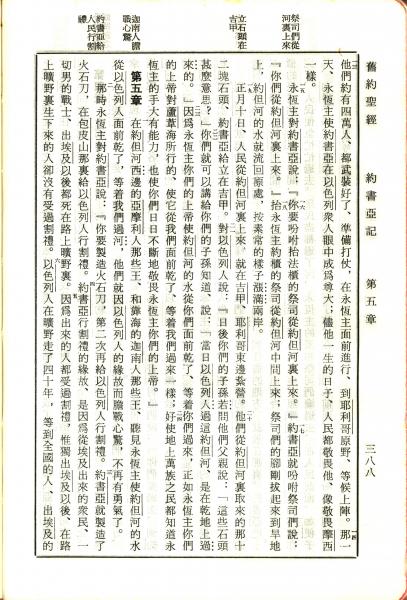 舊約聖經　約書亞記　第五章　三八八
他們約有四萬人、都武裝好了、準備打仗，在永恆主面前進行、到耶利哥原野、等候上陣。那一
天、永恆主使約書亞在以色列衆人眼中成爲尊大；儘他一生的日子、人民都敬畏他、像敬畏摩西
一樣。
永恆主對約書亞說：『你要吩咐抬法櫃的祭司從約但河裏上來。』約書亞就吩咐祭司們說：
『你們從約但河裏上來。』抬永恆主約櫃的祭司從約但河中間上來；祭司們的腳剛拔起來到旱地
上，約但河的水就流回原處、按素常的樣子漲滿兩岸。
正月十日、人民從約但河裏上來、就在吉甲、耶利哥東邊紮營。他們從約但河裏取來的那十
二塊石頭、約書亞給立在吉甲。對以色列人說：『日後你們的子孫若問他們父親說：「這些石頭
甚麼意思？」你們就可以講給你們的子孫知道、說：「當日以色列人過這約但河、是在乾地上過
來的。」因爲永恆主你們的上帝使約但河的水從你們面前乾了、等着你們過來，正如永恆主你們
的上帝對蘆葦海所行的、使它從我們面前乾了、等着我們過來一樣；好使地上萬族之民都知道永
恆主的手大有能力，也使你們日日不斷地敬畏永恆主你們的上帝。』
第五章　在約但河西邊的亞摩利人那些王、和靠海的迦南人那些王、聽見永恆主使約但河的水
從以色列人面前乾了，等着我們過河，他們就因以色列人的緣故而膽戰心驚，不再有勇氣了。
那時永恆主對約書亞說：『你要製造火石刀，第二次再給以色列人行割禮。』約書亞就製造了
火石刀，在包皮山那裏給以色列人行割禮。約書亞行割禮的緣故、是因爲從埃及出來的衆民、一
切男的戰士、出埃及以後都死在路上曠野裏。因爲出來的人都受過割禮，惟獨出埃及以後、在路
上曠野裏生下來的人卻沒有受過割禮。以色列人在曠野走了四十年，等到全國的人、出埃及的
祭司們從
河裏上來
立石頭在
吉甲
迦南人膽
戰心驚
約書亞給
人民行割
禮